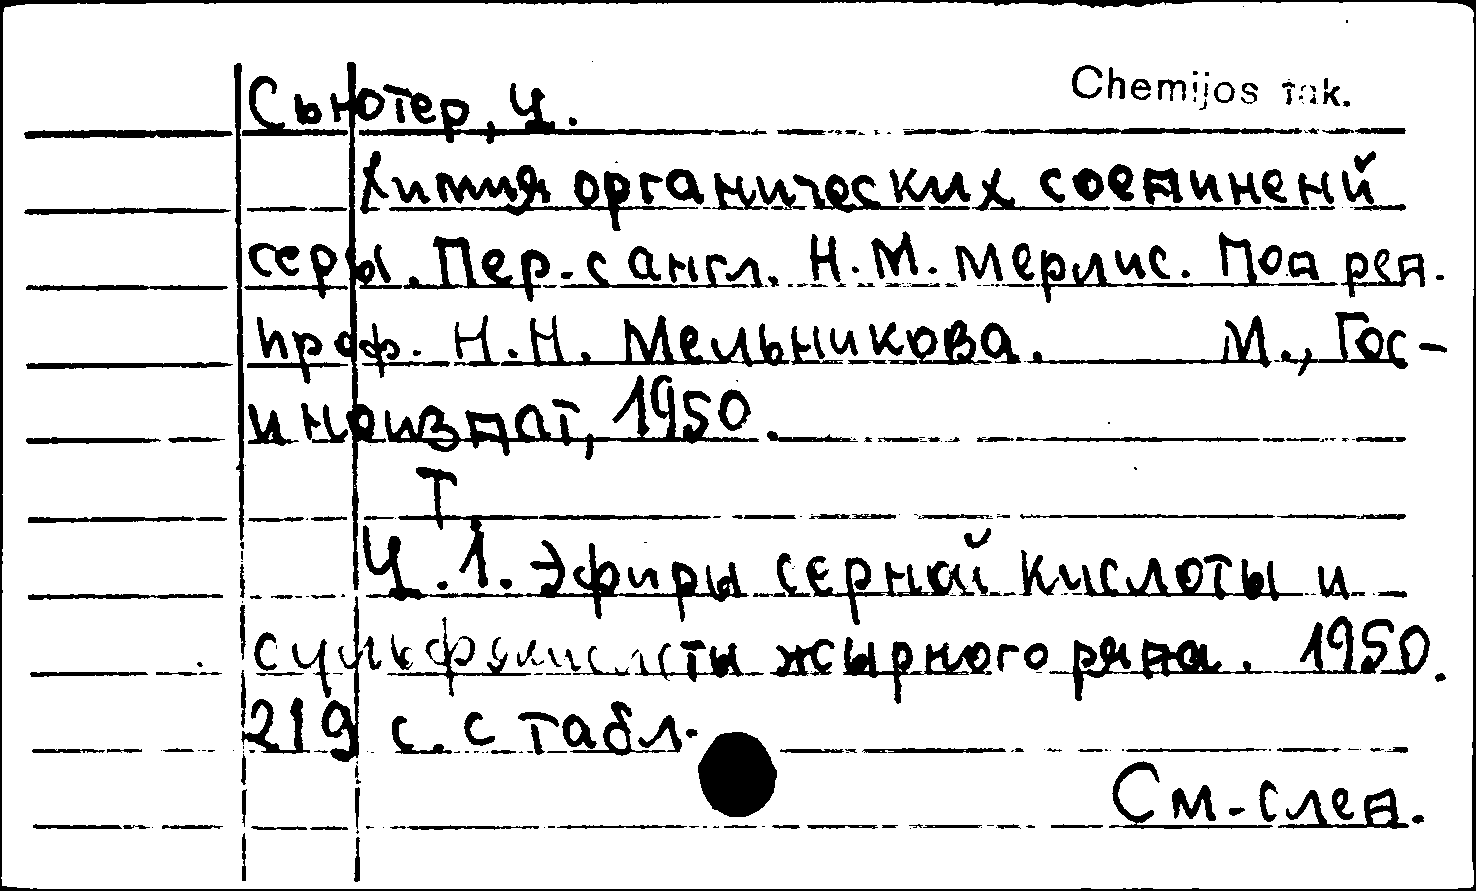 Chemijos fak.
Сьютер, Ч.
Химия органических соединений
серы. Пер. с англ. Н.М. Мерлис. Под ред.
проф. Н.Н. Мельникова. М., Гос-
иноиздат, 1950.
Т
Ч.1. Эфиры серной кислоты и
сульфокислоты жырного ряда. 1950.
219 с. с табл.
См. след.